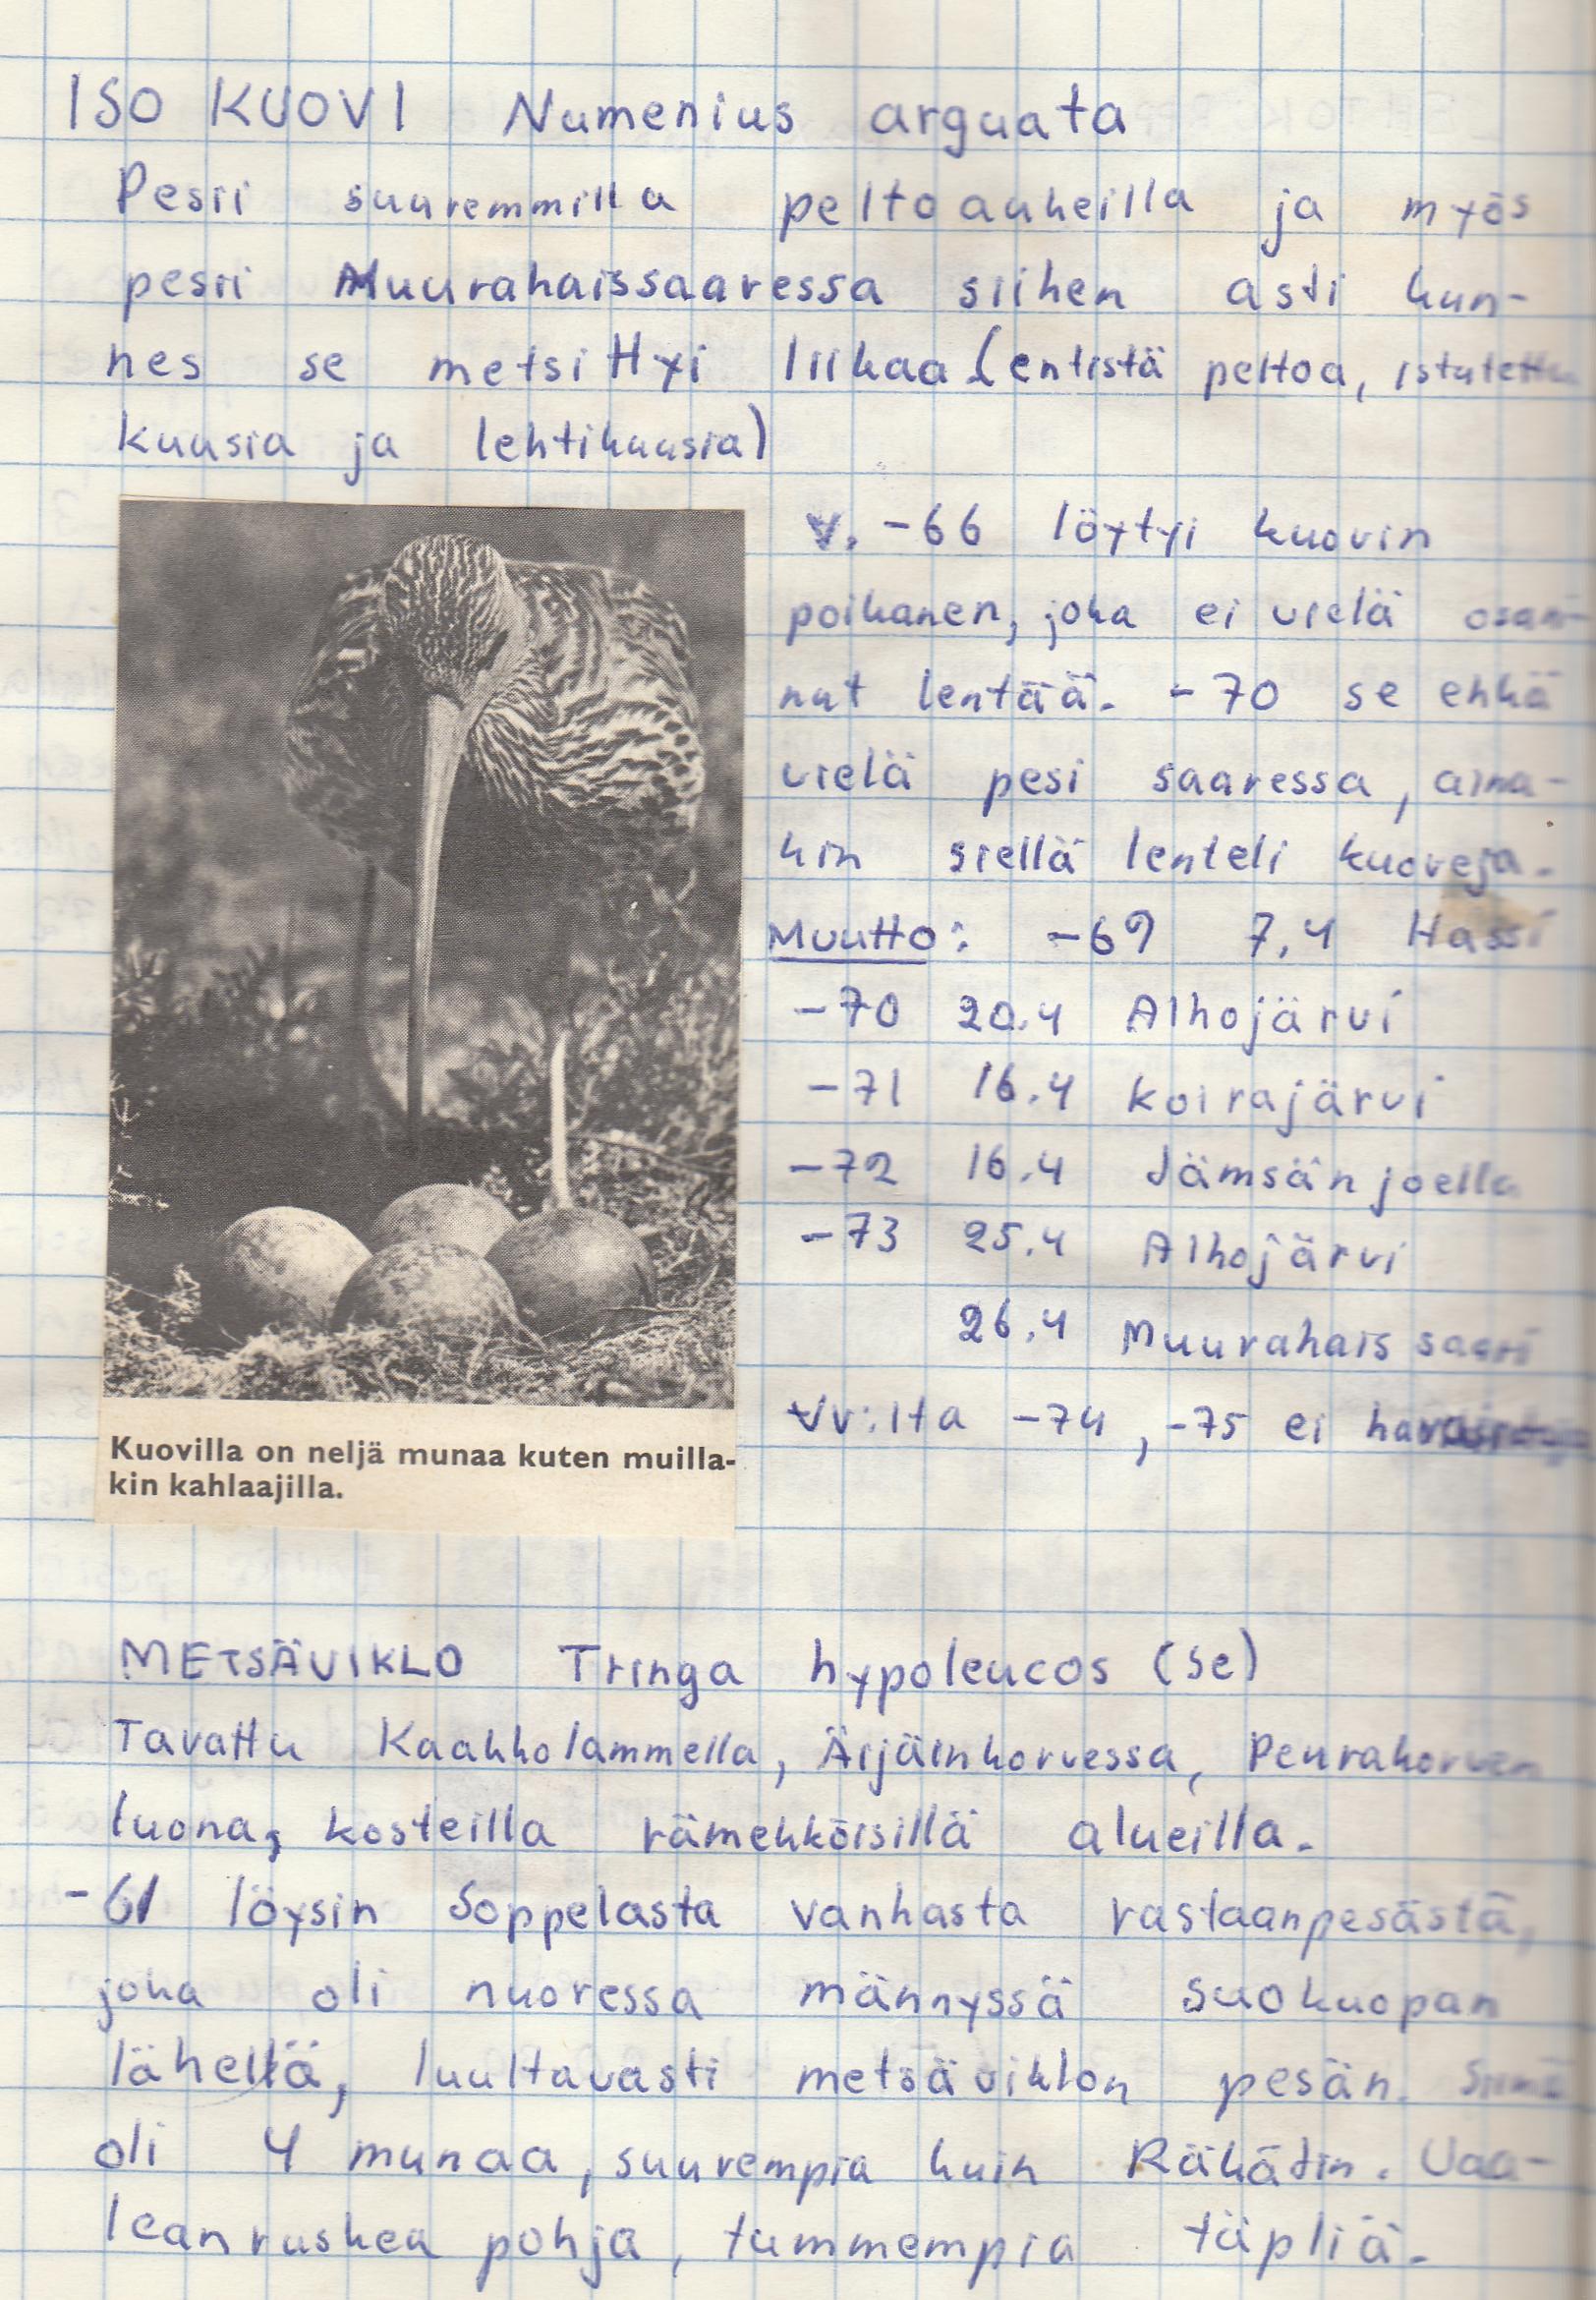 ISO KUOVI Numenius arguata
Pesii suuremmilla peltoaukeilla ja myös
pesii Muurahaissaaressa siihen asti kun-
nes se metsittyi liikaa (entistä peltoa, istutettu
kuusia ja lehtikuusia)
v. -66 löytyi kuovin
poikanen, joka ei vielä osan-
nut lentää. -70 se ehkä
vielä pesi saaressa, aina-
kin siellä lenteli kuoveja.
Muutto: -69 7.4 Hassi
-70 20.4 Alhojärvi
-71 16.4 Koirajärvi
-72 16.4 Jämsänjoella
-73 25.4 Alhojärvi
26.4 Muurahaissaari
Vv:lta -74, -75 ei
Kuovilla on neljä munaa kuten muilla-
kin kahlaajilla.
METSÄVIKLO Tringa hypoleucos (se)
Tavattu Kaakkolammella, Äijäinkorvessa, Peurakorven
luona, kosteilla rämehköisillä alueilla.
-61 löysin Soppelasta vanhasta rastaanpesästä,
joka oli nuoressa männyssä suokuopan
lähellä, luultavasti metsäviklon pesän. Siinä
oli 4 munaa, suurempia kuin Räkätin. Vaa-
leanruskea pohja, tummempia täpliä.